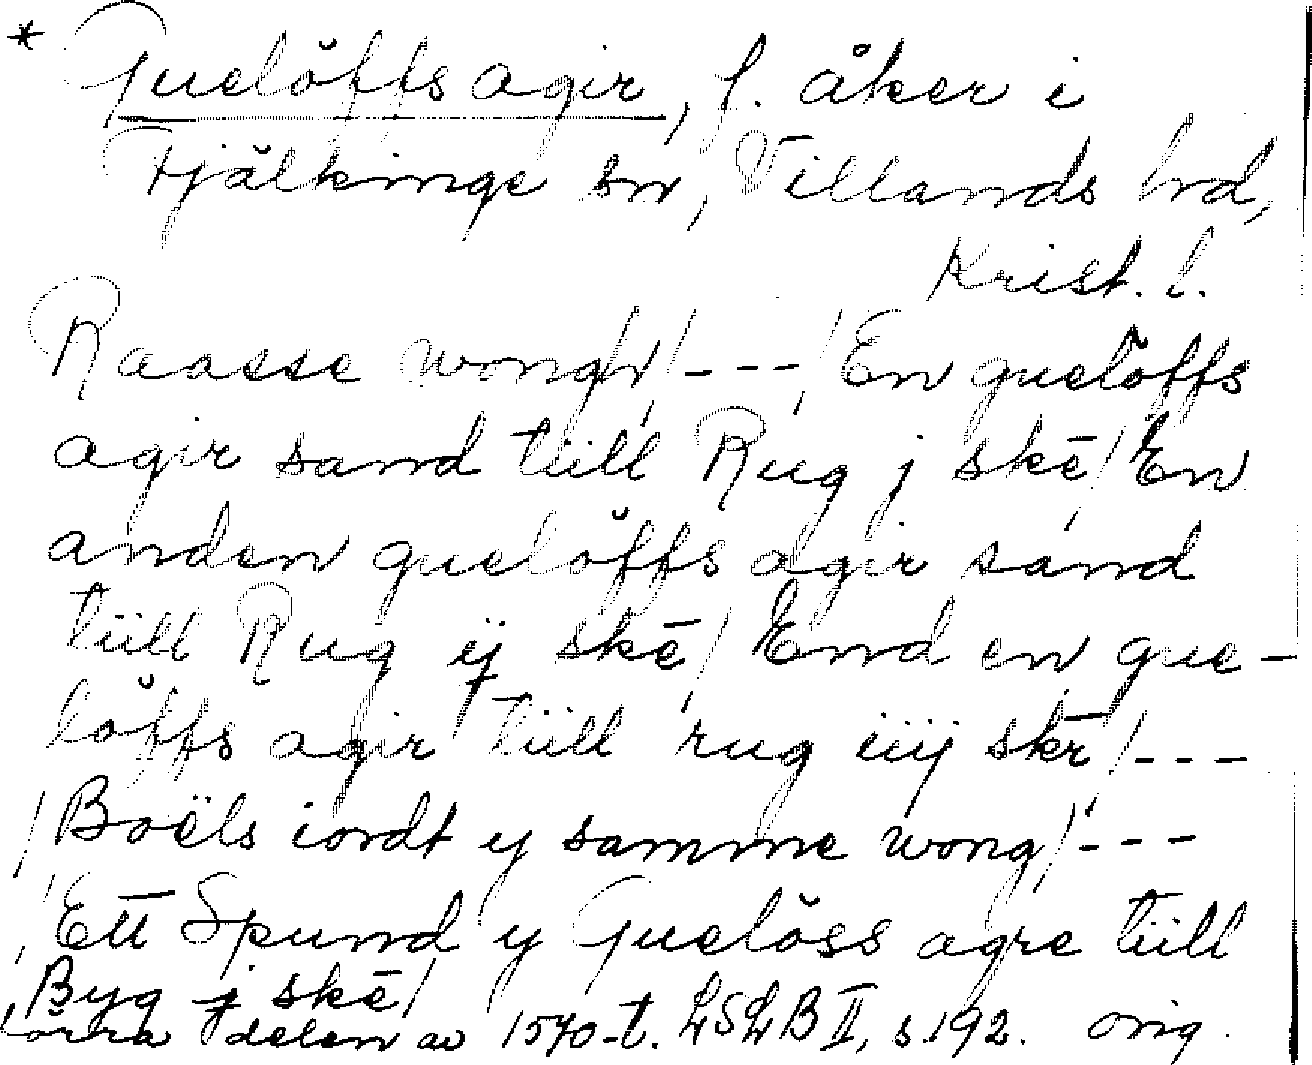 * Guelöffs agir, f. åker i
Fjälkinge sn, Villands hd,
Krist. l.
Raasse wongh/ - - - / En guelöffs
agir sand tiill Rug j skē/ En
anden guelöffs agir sand
tiill Rug ij skē/ End en gue-
löffs agir tiill rug iiij skr̄/ - - -
/ Boëls iordt y samme wong/ - - -
/ Ett Spund y Guelöss agre tiill
Byg j skē/
förra delen av 1570-t. LSLB II, s. 192. orig.